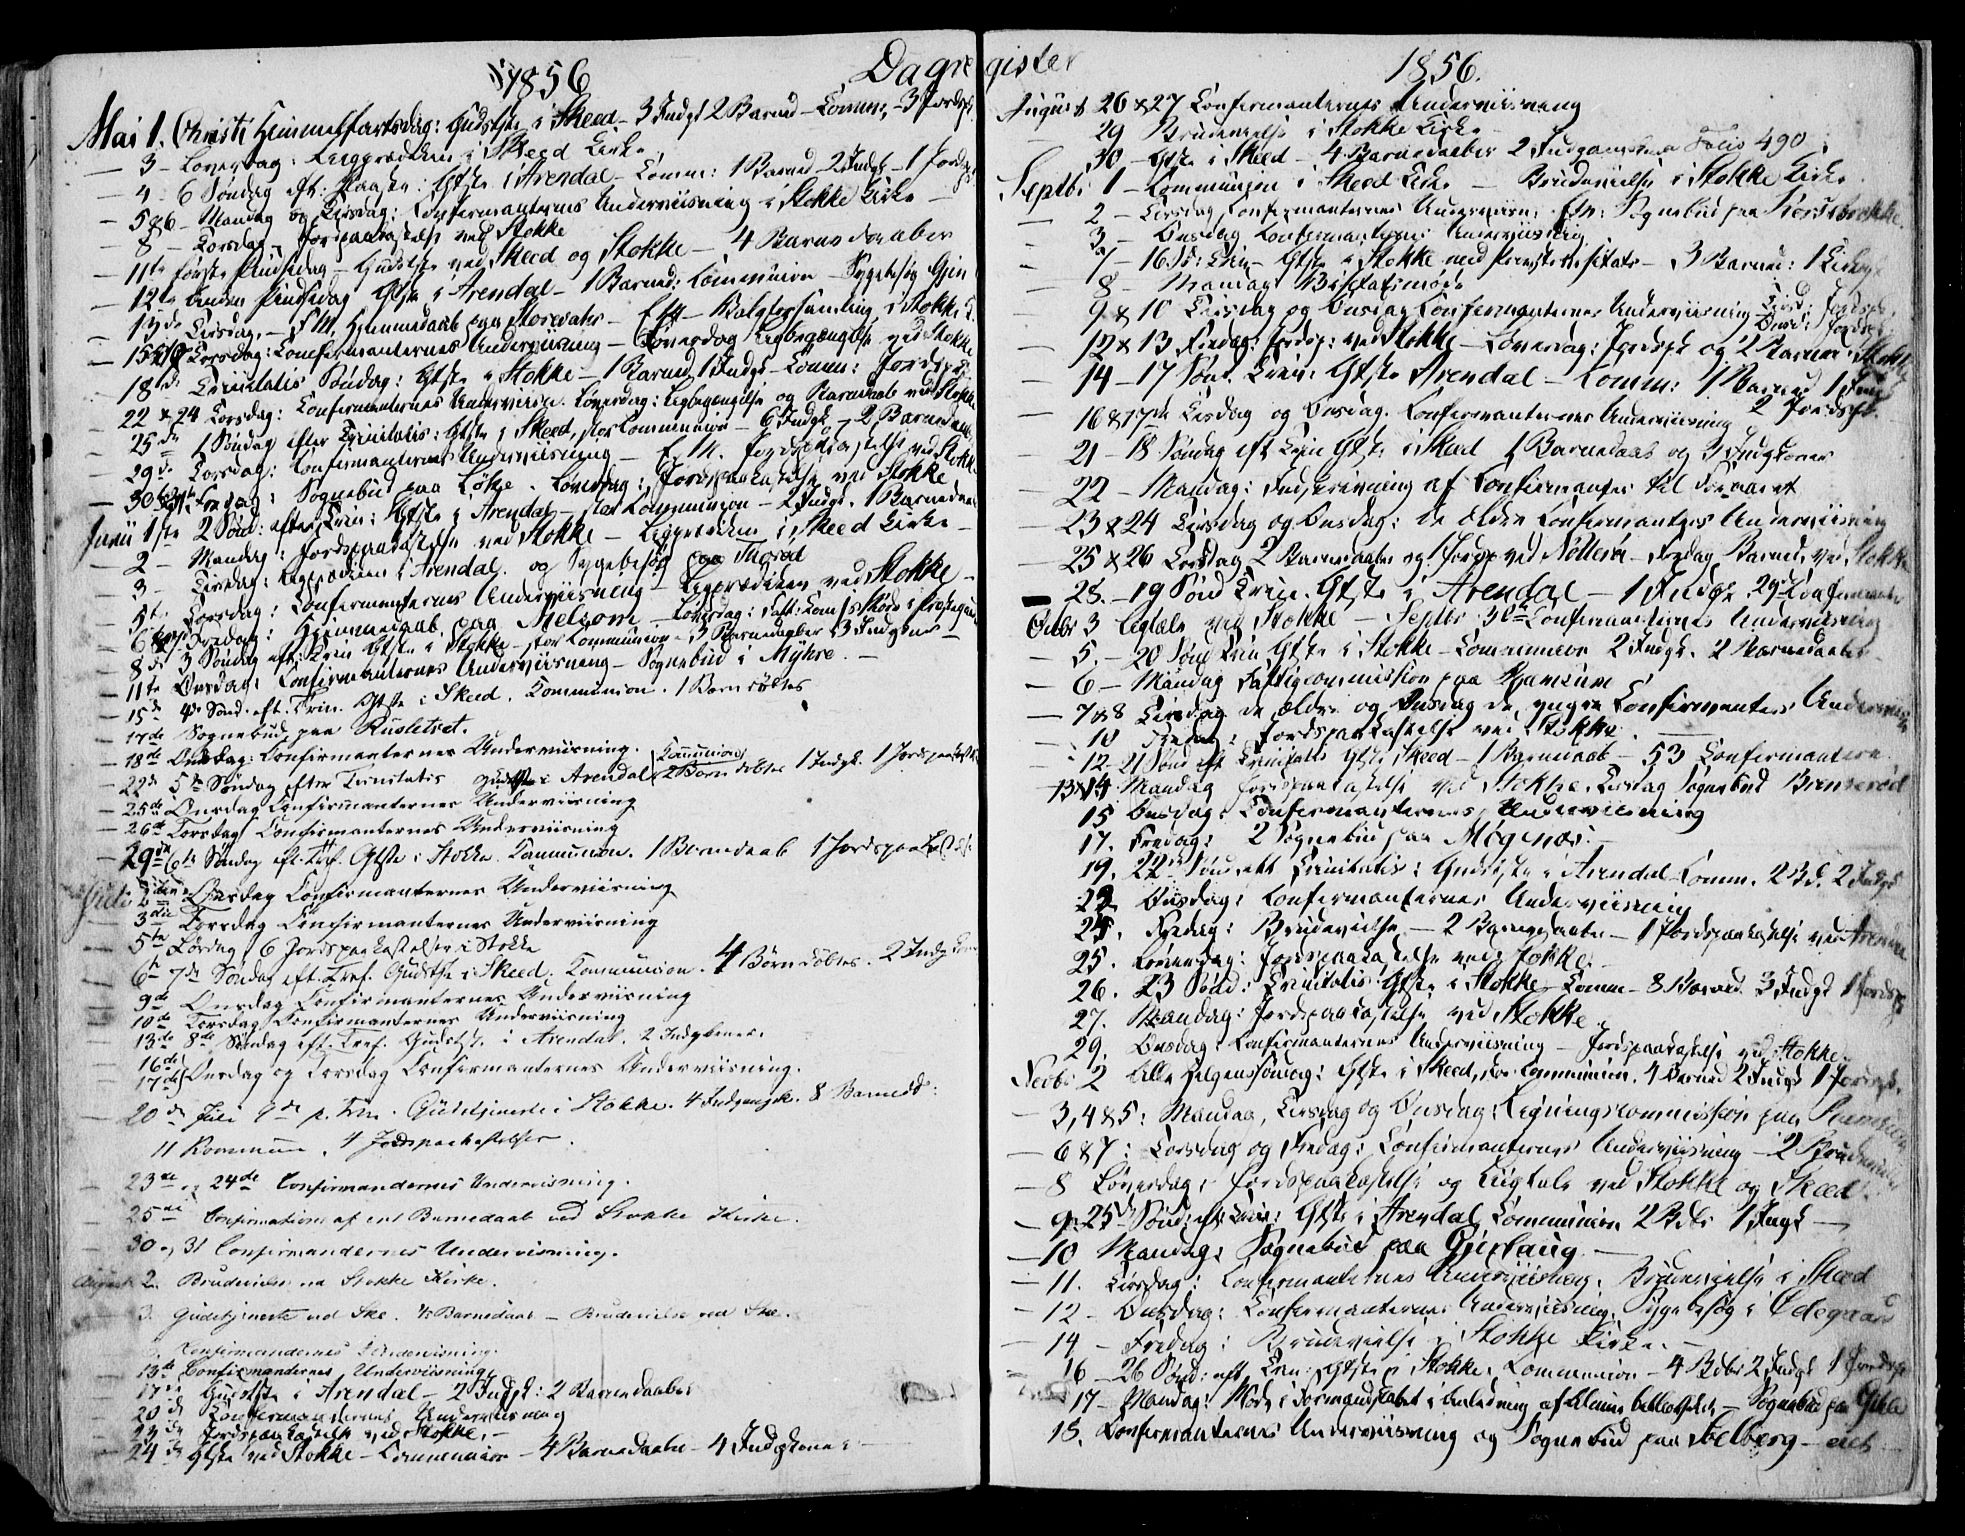 1856 Dagregister 1856.
Mai 1. Christi Himmelfartsdag: Gudstjste i Skeed - 3 Indgk 2 Barned - Comm: - 3 Jordsp
- 3 - Løverdag: Liigprædiken i Skeed Kirke
- 4 - 6 Søndag eft: Paaske: Gtste i Arendal - Comm: 1 Barned - 2 Indgk - 1 Jordsp
- 5 & 6 - Mandag og Tirsdag: Confirmanternes Underviisning i Stokke Kirke -
- 8 - Torsdag - Jordpaakastelse ved Stokke
- 11te første Pindsedag - Gudstjste ved Skeed og Stokke - 4 Barnedaaber
- 12te Anden Pindsedag Gtste i Arendal - 1 Barned: Communion - Sygebesøg
- 13de Tirsdag. - F.M. Hjemmedaab paa - Eft - Valgforsamling i Stokke
- 15 Torsdag: Confirmanternes Underviisning - Løverdag Liigbegængelse ved Stokke
18de Trinitatis Søndag: Gtste i Stokke - 1 Barned 1 Indgk - Comm: Jordsp
22 & 24 Torsdag: Confirmanternes Underviisn. Løverdag: Liigbegængelse og Barnedaab ved Stokke
25de 1 Søndag efter Trinitatis: Gtste i Skeed, stor Communion - 6 Indgk - 2 Barnedaab
29de Torsdag: Confirmanternes Underviisning - E.M. Jordpaakastelse ved Stokke
- 30 Fredag: Sognebud paa Løkke. Løverdag: Jordspaakastelse ved Stokke
Junii 1ste 2 Sønd: efter Trin: Gtste i Arendal - stor Communion - 2 Indgk. 1 Barnedaab
- 2 - Mandag: Jordspaakastelse ved Stokke - Liigprædiken i Skeed Kirke -
- 3 - Tirsdag: Liigprædiken i Arendal. og Sygebesøg paa
- 5te Torsdag: Confirmanternes Underviisning - Liigprædiken ved Stokke -
- 6 Fredag: Hjemmedaab paa Melsom - Løverdag:
- 8de 3 Søndag eft: Trin Gtste i Stokke - stor Communion - 3 Barnedaaber 3 Indgkoner -
- 11te Onsdag: Confirmanternes Underviisning - Sognebud i Myhre. -
- 15de 4de Sønd. eft. Trin. Gtste i Skeed. Communion. 1 Barn døbtes
- 17de Sognebud paa
- 18de Onsdag: Confirmanternes Underviisning.
- 22de 5te Søndag efter Trinitatis Gudstste i Arendal Communion 2 Børn døbtes 1 Indgk. 1 Jordspaak
- 25de Onsdag Confirmanternes Underviisning
- 26de Torsdag Confirmanternes Underviisning
- 29de 6te Søndag eft. Tref. Gtste i Stokke Communion. 1 Barnedaab 1 Jordspaak
Juli 2den Onsdag Confirmanternes Underviisning
- 3die Torsdag Confirmanternes Underviisning
- 5te Lørdag 6 Jordspaakastelser i Stokke
- 6te 7de Søndag eft. Tref. Gudstste i Skeed. Communion. 4 Børn døbtes. 2 Indgkoner
- 9de Onsdag Confirmanternes Underviisning
- 10de Torsdag Confirmanternes Underviisning
- 13de 8de Søndag eft. Tref. Gudstste i Arendal. 2 Indgkoner.
- 16de 17de Onsdag og Torsdag Confirmanternes Underviisning.
20de Juli 9de p. Trin. Gudstjeneste i Stokke. 4 Indgangsk. 8 Barnedb:
11 Kommun . 4 Jordspaakastelser.
- 23de og 24de Confirmandernes Underviisning.
- 25de Confirmation af ent Barnedaab ved Stokke Kirke.
- 30 og 31 Confirmandernes Underviisning.
August 2. Brudevielse ved Stokke Kirke.
3. Gudstjeneste ved Ske. Barnedaab - Brudevielse ved Ske.
Confirmandernes Underviisning.
13de Confirmandernes Underviisning
17de Gudstste i Arendal - 2 Indgk: 2 Barnedaaber
20de Confirmandernes Underviisning
23de Jordspaakastelse ved Stokke. -
24de Gtste ved Stokke - Communion - 4 Barnedaaber - 4 Indgkoner -
August 26 & 27 Confirmanternes Underviisning
- 29 Brudevielse i Stokke Kirke -
- 30 - Gtste i Skeed - 4 Barnedaaber 2 Folio 490
Septbr 1 - Communion i Skeed Kirke - Brudevielse i Stokke Kirke.
- 2 - Tirsdag Confirmanternes Underviisn. Sognebud paa
- 3 - Onsdag Confirmanternes Underviisning
- 7 - 16 Sø: Trin - Gtste i Stokke med Provstevisitats - 3 Barned: 1
- 8 - Mandag Visitatsmøde
- 9 & 10 Tirsdag og Onsdag Confirmanternes Underviisning Tirsd: Jordsp. Onsd: Jordsp.
- 12 & 13 Fredag: Jordsp: ved Stokke - Løverdag: Jordspk og 2 Barned Stokke
- 14 - 17 Sønd. Trin: Gtste Arendal - Comm: 1 Barned 1 Indgk 2 Jordspk.
- 16 & 17de Tirsdag og Onsdag. Confirmanternes Underviisning
- 21 - 18 Søndag eft Trin Gtste i Skeed 1 Barnedaab og 3 Indgkoner
- 22 - Mandag: Indskrivning af Confirmanter til Foraaret
- 23 & 24 Tirsdag og Onsdag: de ældre Confirmanters Underviisning
- 25 & 26 Torsdag 2 Barnedaaber og 1 Jordsp ved Nøtterø - Fredag Barned. ved Stokke
- 28. - 19 Sønd Trin. Gtste i Arendal - 1 Indgk 29
Octbr 3 Ligtale ved Stokke - Septbr 30te Confirmanternes Underviisning
- 5. - 20 Sønd Trin Gtste i Stokke - Communion 2 Indgk. 2 Barnedaaber
- 6 - Mandag Fattigcommission paa
- 7 & 8 Tirsdag de ældre og Onsdag de yngre Confirmanters Underviisn
- 10 Fredag: Jordspaakastelse ved Stokke. -
- 12 - 21 Sønd eft Trinitatis Gtste Skeed - 1 Barnedaab - 53 Confirmantere
13 & 14 Mandag Jordspaakastelse ved Stokke. Tirsdag Sognebud
15 Onsdag: Confirmanternes Underviisning
17. Fredag: 2 Sognebud paa Møgenæs. -
19. 22de Sønd eft Trinitatis: Gudstste i Arendal Comm. 2 Bd. 2 Indgk
22 Onsdag: Confirmanternes Underviisning
24. Fredag: Brudevielse - 2 Barnedaaber - 1 Jordspaakastelse ved Arendal
25. Løverdag: Jordspaakastelse ved Stokke. -
26. 23 Sønd: Trinitatis Gtste i Stokke Comm - 8 Barned 3 Indgk 1 Jordsp
27. Mandag: Jordspaakastelse ved Stokke.
29. Onsdag Confirmanternes Underviisning - Jordspaakastelse ved Stokke.
Novbr 2 Alle Helgenssøndag: Gtste i Skeed, stor Communion. 4 Barned 2 Indgk 1 Jordspk.
- 3, 4 & 5: Mandag, Tirsdag og Onsdag: Ligningscommission paa
- 6 & 7: Torsdag og Fredag: Confirmanternes Underviisning - 2 Brudevielser
- 8 Løverdag: Jordspaakastelse og Liigtale ved Stokke og Skeed.
- 9. 25de Sønd: eft Trin: Gtste i Arendal Communion 2 Bdbr 1 Indgk -
- 10 Mandag: Sognebud paa Gjerlaug. -
- 11. Tirsdag: Confirmanternes Underviisning. Brudevielse i Skeed
- 12 - Onsdag: Confirmanternes Underviisning. Sygebesøg i Ødegaard
- 14 - Fredag: Brudevielse i Stokke Kirke. -
- 16 - 26 Sønd: eft Trin: Gtste i Stokke. Communion - 4 Bdbr 2 Indgk 1 Jordsp
- 17 - Mandag: Møde i Formandskabet i Anledning af - Sognebud paa
18. Confirmanternes Underviisning og Sognebud paa